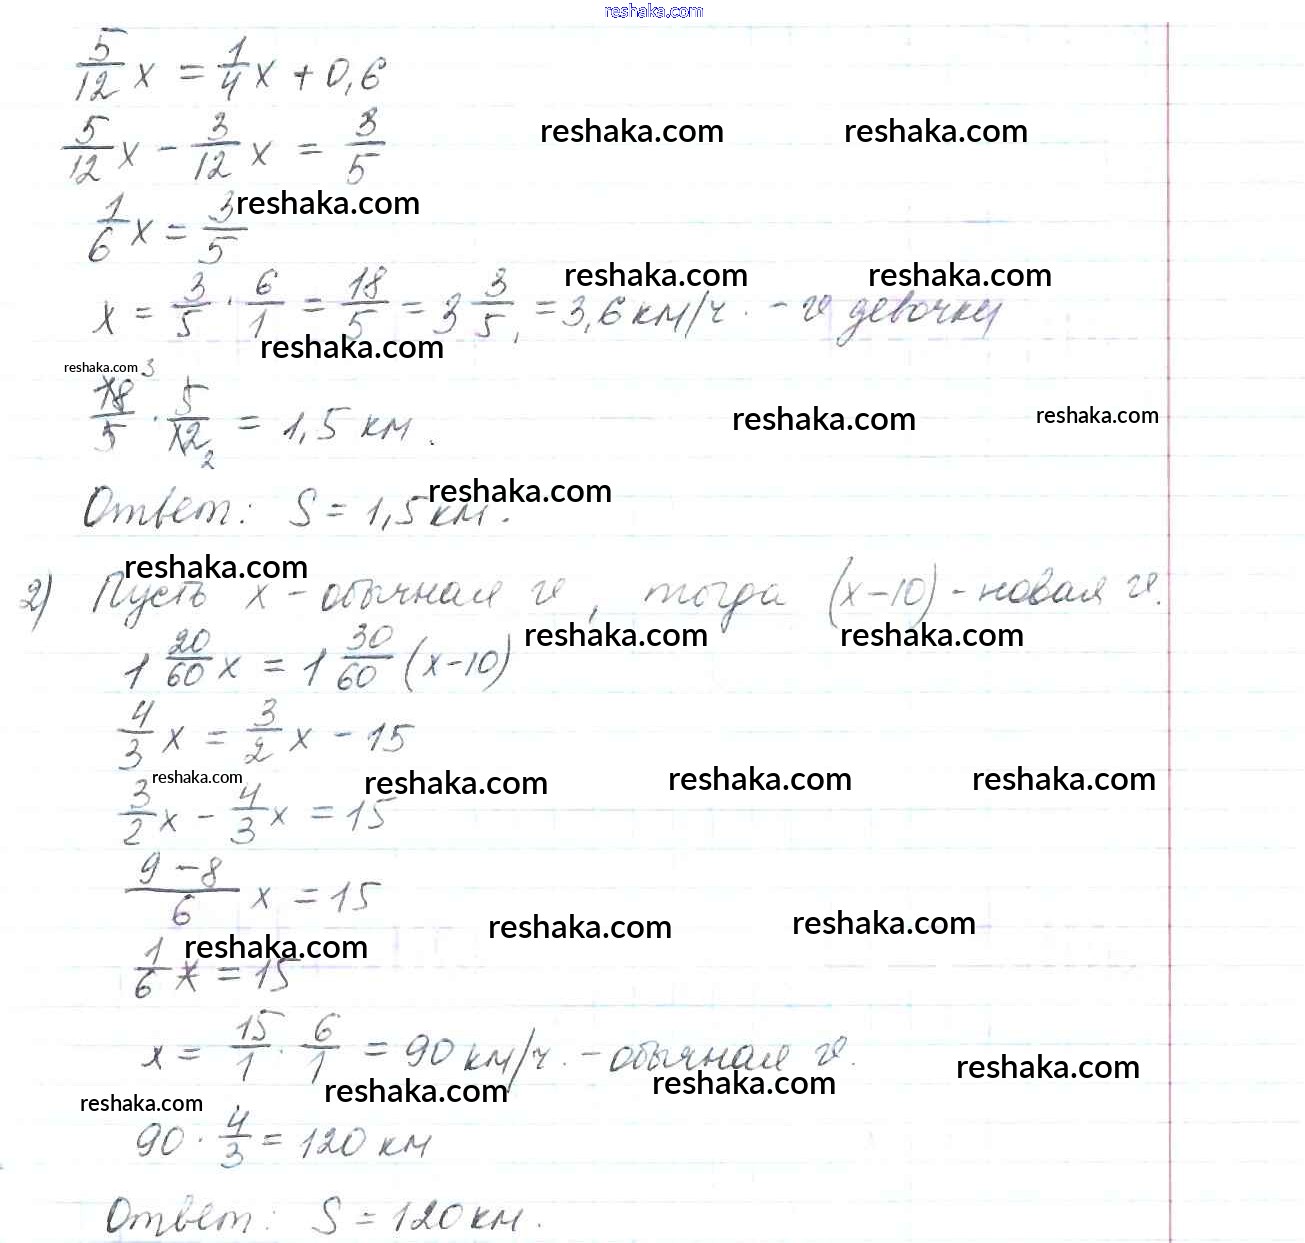 reshaka.com
5/12 x = 1/4 x + 0,6
reshaka.com reshaka.com
5/12 x - 3/12 x = 3/5
reshaka.com
1/6 x = 3/5
reshaka.com reshaka.com
x = 3/5 · 6/1 = 18/5 = 3 3/5 = 3,6 км/ч. - υ девочки
reshaka.com
reshaka.com 3
18/5 · 5/12 = 1,5 км.
2
reshaka.com reshaka.com
reshaka.com
Ответ: S = 1,5 км.
reshaka.com
2) Пусть x - обычная υ, тогда (x-10) - новая υ.
reshaka.com reshaka.com
1 20/60 x = 1 30/60 (x-10)
4/3 x = 3/2 x - 15
reshaka.com reshaka.com reshaka.com reshaka.com
3/2 x - 4/3 x = 15
9-8/6 x = 15
reshaka.com reshaka.com reshaka.com
1/6 x = 15
x = 15/1 · 6/1 = 90 км/ч. - обычная υ.
reshaka.com reshaka.com reshaka.com reshaka.com
90 · 4/3 = 120 км
Ответ: S = 120 км.